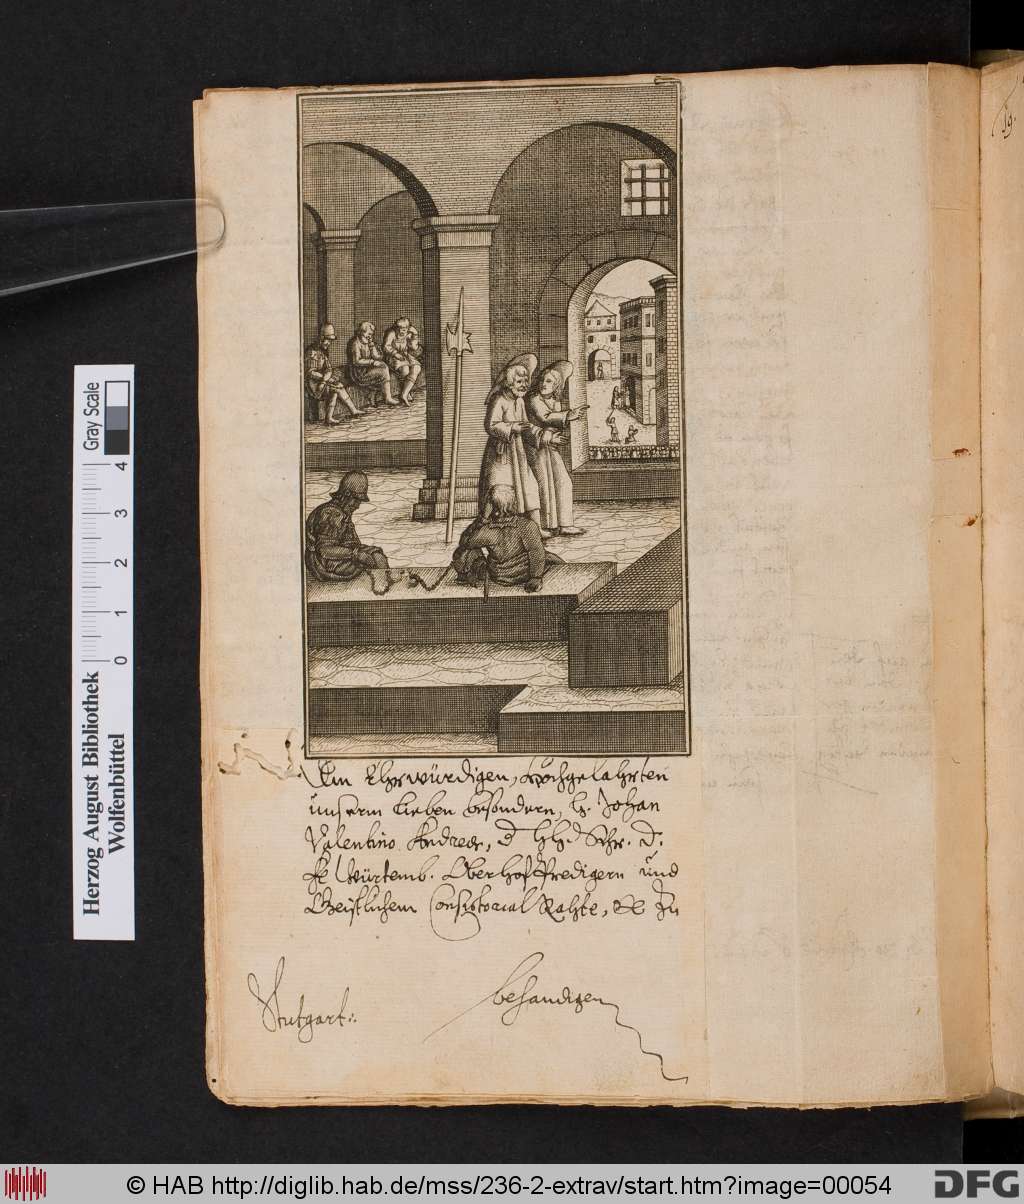 19.
Dem Ehrwürdigen, Hochgelahrten
unserm lieben besondern, H. Johan
Valentino Andreae, d. H. Schr. D.
Fr. Würtemb. Oberhoffpredigern und
Geistlichem Consistorial Rahte, zu
behandigen
Stutgart.
Gray Scale
4
3
2
1
0
Herzog August Bibliothek
Wolfenbüttel
© HAB http://diglib.hab.de/mss/236-2-extrav/start.htm?image=00054
DFG